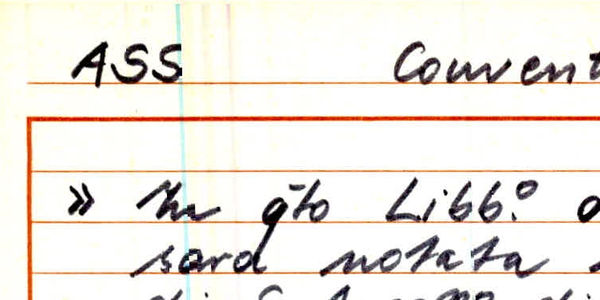 ASS Convent
» In q̄to Libb.º
sarà notata
di S.